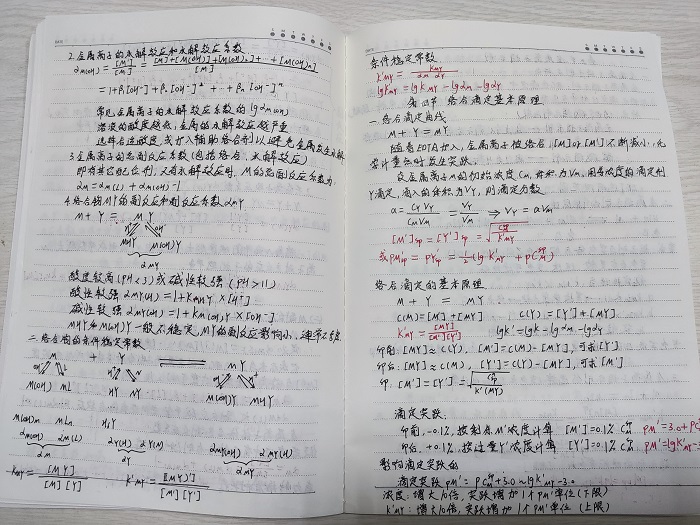 2.金属离子的水解效应和水解效应系数
αM(OH) = [M']/[M] = [M]+[M(OH)]+[M(OH)₂]+ ··· +[M(OH)n]/[M]
= 1+β₁[OH⁻]+β₂[OH⁻]²+ ··· +βn[OH⁻]ⁿ
常见金属离子的水解效应系数的lgαM(OH)
溶液的酸度越低,金属的水解效应越严重
选择合适酸度,或加入辅助络合剂以避免金属发生水解
3.金属离子的总副反应系数(包括络合,水解效应)
即有其它配位剂,又有水解效应时,M的总副反应系数为
αM = αM(L) + αM(OH) -1
4.络合物MY的副反应和副反应系数αMY
M + Y = MY
H⁺ OH⁻
MHY M(OH)Y
αMY
酸度较高(PH<3)或碱性较强(PH>11)
酸性较强 αMY(H) = 1+KMHY×[H⁺]
碱性较强 αMY(OH) = 1+KM(OH)Y×[OH⁻]
MHY和M(OH)Y一般不稳定,MY的副反应影响小,通常不考虑
二.络合物的条件稳定常数
M + Y ⇌ MY
M(OH) ML HY NY M(OH)Y MHY
M(OH)n MLn H₆Y
αM(OH) αM(L) αY(H) αY(N) αMY(OH) αMY(H)
αM αY αMY
KMY = [MY]/[M][Y] K'MY = [(MY)']/[M'][Y']
条件稳定常数
K'MY = KMY/αM αY
lgK'MY = lgKMY - lgαM - lgαY
第四节 络合滴定基本原理
一.络合滴定曲线
M + Y = MY
随着EDTA加入,金属离子被络合,[M]或[M']不断减小,化
学计量点时发生突跃
设金属离子M的初始浓度CM,体积为VM,用等浓度的滴定剂
Y滴定,滴入的体积为VY,则滴定分数
a = CY VY/CM VM = VY/VM ⇒ VY = aVM
[M']sp = [Y']sp = √(CMsp/K'MY)
或PM'sp = PY'sp = 1/2(lgK'MY + pCMsp)
络合滴定的基本原理
M + Y = MY
C(M) = [M] + [MY] C(Y) = [Y'] + [MY]
K'MY = [MY]/[M'][Y'] lgK' = lgK - lgαM - lgαY
即前: [MY]≈C(Y), [M'] = C(M) - [MY], 可求[Y']
即后: [MY]≈C(M), [Y'] = C(Y) - [MY], 可求[M']
即: [M'] = [Y'] = √(CMsp/K'(MY))
滴定突跃:
即前, -0.1%, 按剩余M'浓度计算 [M'] = 0.1% CMsp PM' = 3.0+PC
即后, +0.1%, 按过量Y'浓度计算 [Y'] = 0.1% CMsp PM' = lgK'MY
影响滴定突跃的
滴定突跃PM' = PCMsp+3.0 ~ lgK'MY-3.0
浓度: 增大10倍, 突跃增加1个PM'单位(下限)
K'MY: 增大10倍, 突跃增加1个PM'单位(上限)